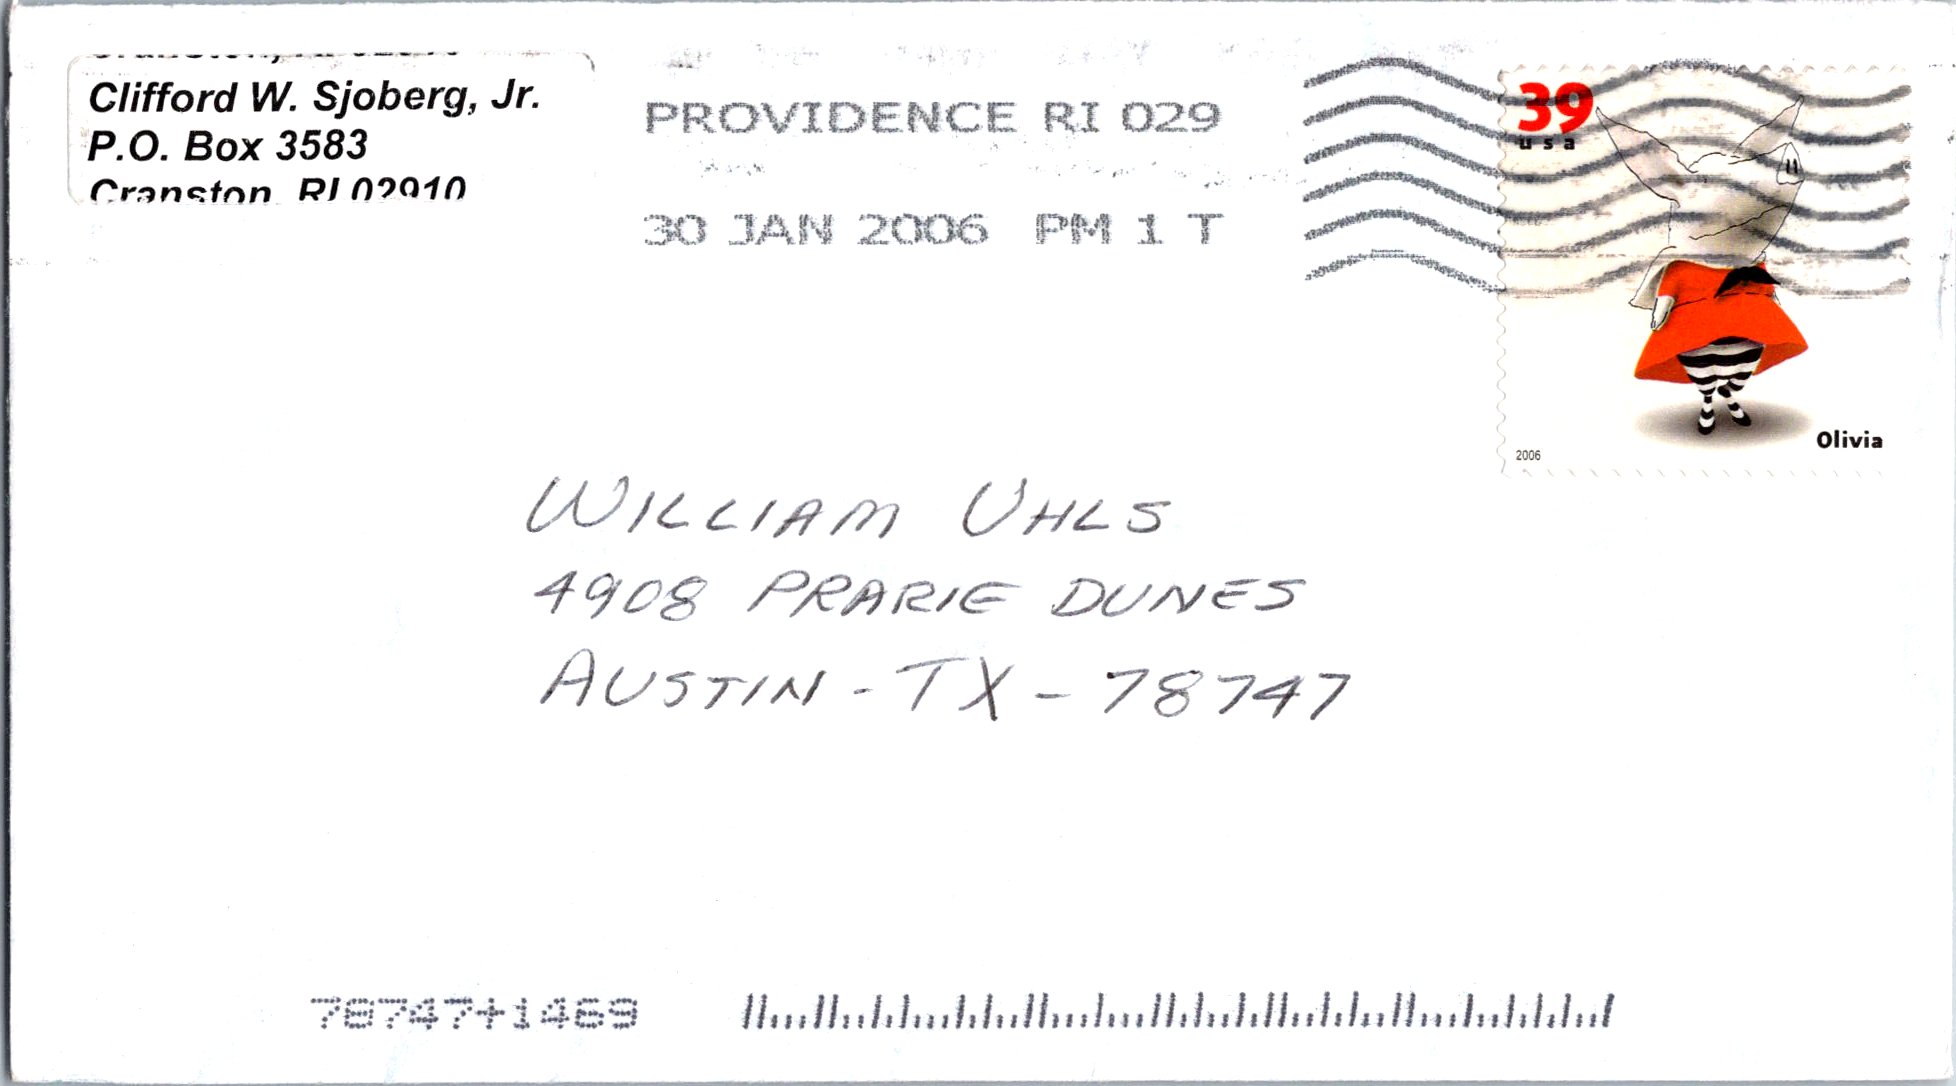 Clifford W. Sjoberg, Jr.
P.O. Box 3583
Cranston, RI 02910
PROVIDENCE RI 029
30 JAN 2006 PM 1 T
39
usa
Olivia
2006
WILLIAM UHLS
4908 PRARIE DUNES
AUSTIN - TX - 78747
78747+1469